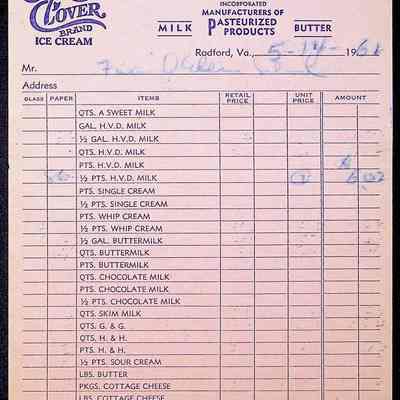 CLOVER
BRAND
ICE CREAM
INCORPORATED
MANUFACTURERS OF
MILK PASTEURIZED BUTTER
PRODUCTS
Radford, Va., 5-14- 196
Mr.
Address
GLASS PAPER ITEMS RETAIL PRICE UNIT PRICE AMOUNT
QTS. A SWEET MILK
GAL. H.V.D. MILK
½ GAL. H.V.D. MILK
QTS. H.V.D. MILK
PTS. H.V.D. MILK
½ PTS. H.V.D. MILK
PTS. SINGLE CREAM
½ PTS. SINGLE CREAM
PTS. WHIP CREAM
½ PTS. WHIP CREAM
½ GAL. BUTTERMILK
QTS. BUTTERMILK
PTS. BUTTERMILK
QTS. CHOCOLATE MILK
PTS. CHOCOLATE MILK
½ PTS. CHOCOLATE MILK
QTS. SKIM MILK
QTS. G. & G.
QTS. H. & H.
PTS. H. & H.
½ PTS. SOUR CREAM
LBS. BUTTER
PKGS. COTTAGE CHEESE
LBS. COTTAGE CHEESE